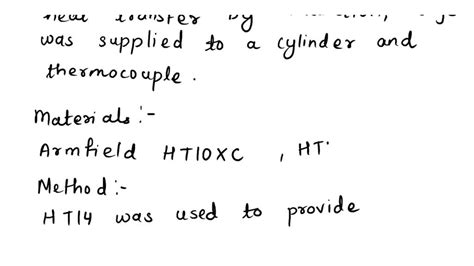 heat transfer by
was supplied to a cylinder and
thermocouple.
Materials :-
Armfield HT10XC , HT
Method :-
HT14 was used to provide